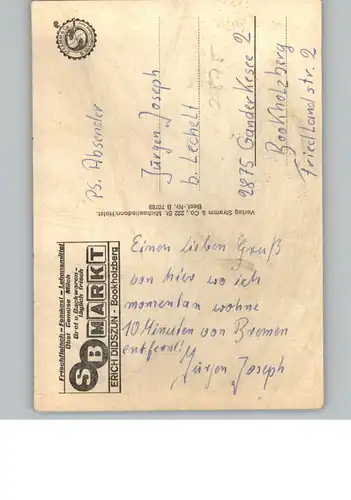 Frischfleisch - Feinkost - Lebensmittel
Obst - Gemüse - Milch
Brot u. Backwaren
täglich frisch
SB MARKT
ERICH DIDSZUN - Bookholzberg
Einen lieben Gruß
von hier wo ich
momentan wohne
10 Minuten von Bremen
entfernt!
Jürgen Joseph
Verlag Stramm & Co., 222 St. Michaelisdonn/Holst.
Best.-Nr. B 70789
PS. Absender
Jürgen Joseph
b. Lechelt
2875 Ganderkesee 2
Bookholzberg
Friedlandstr. 2
2875